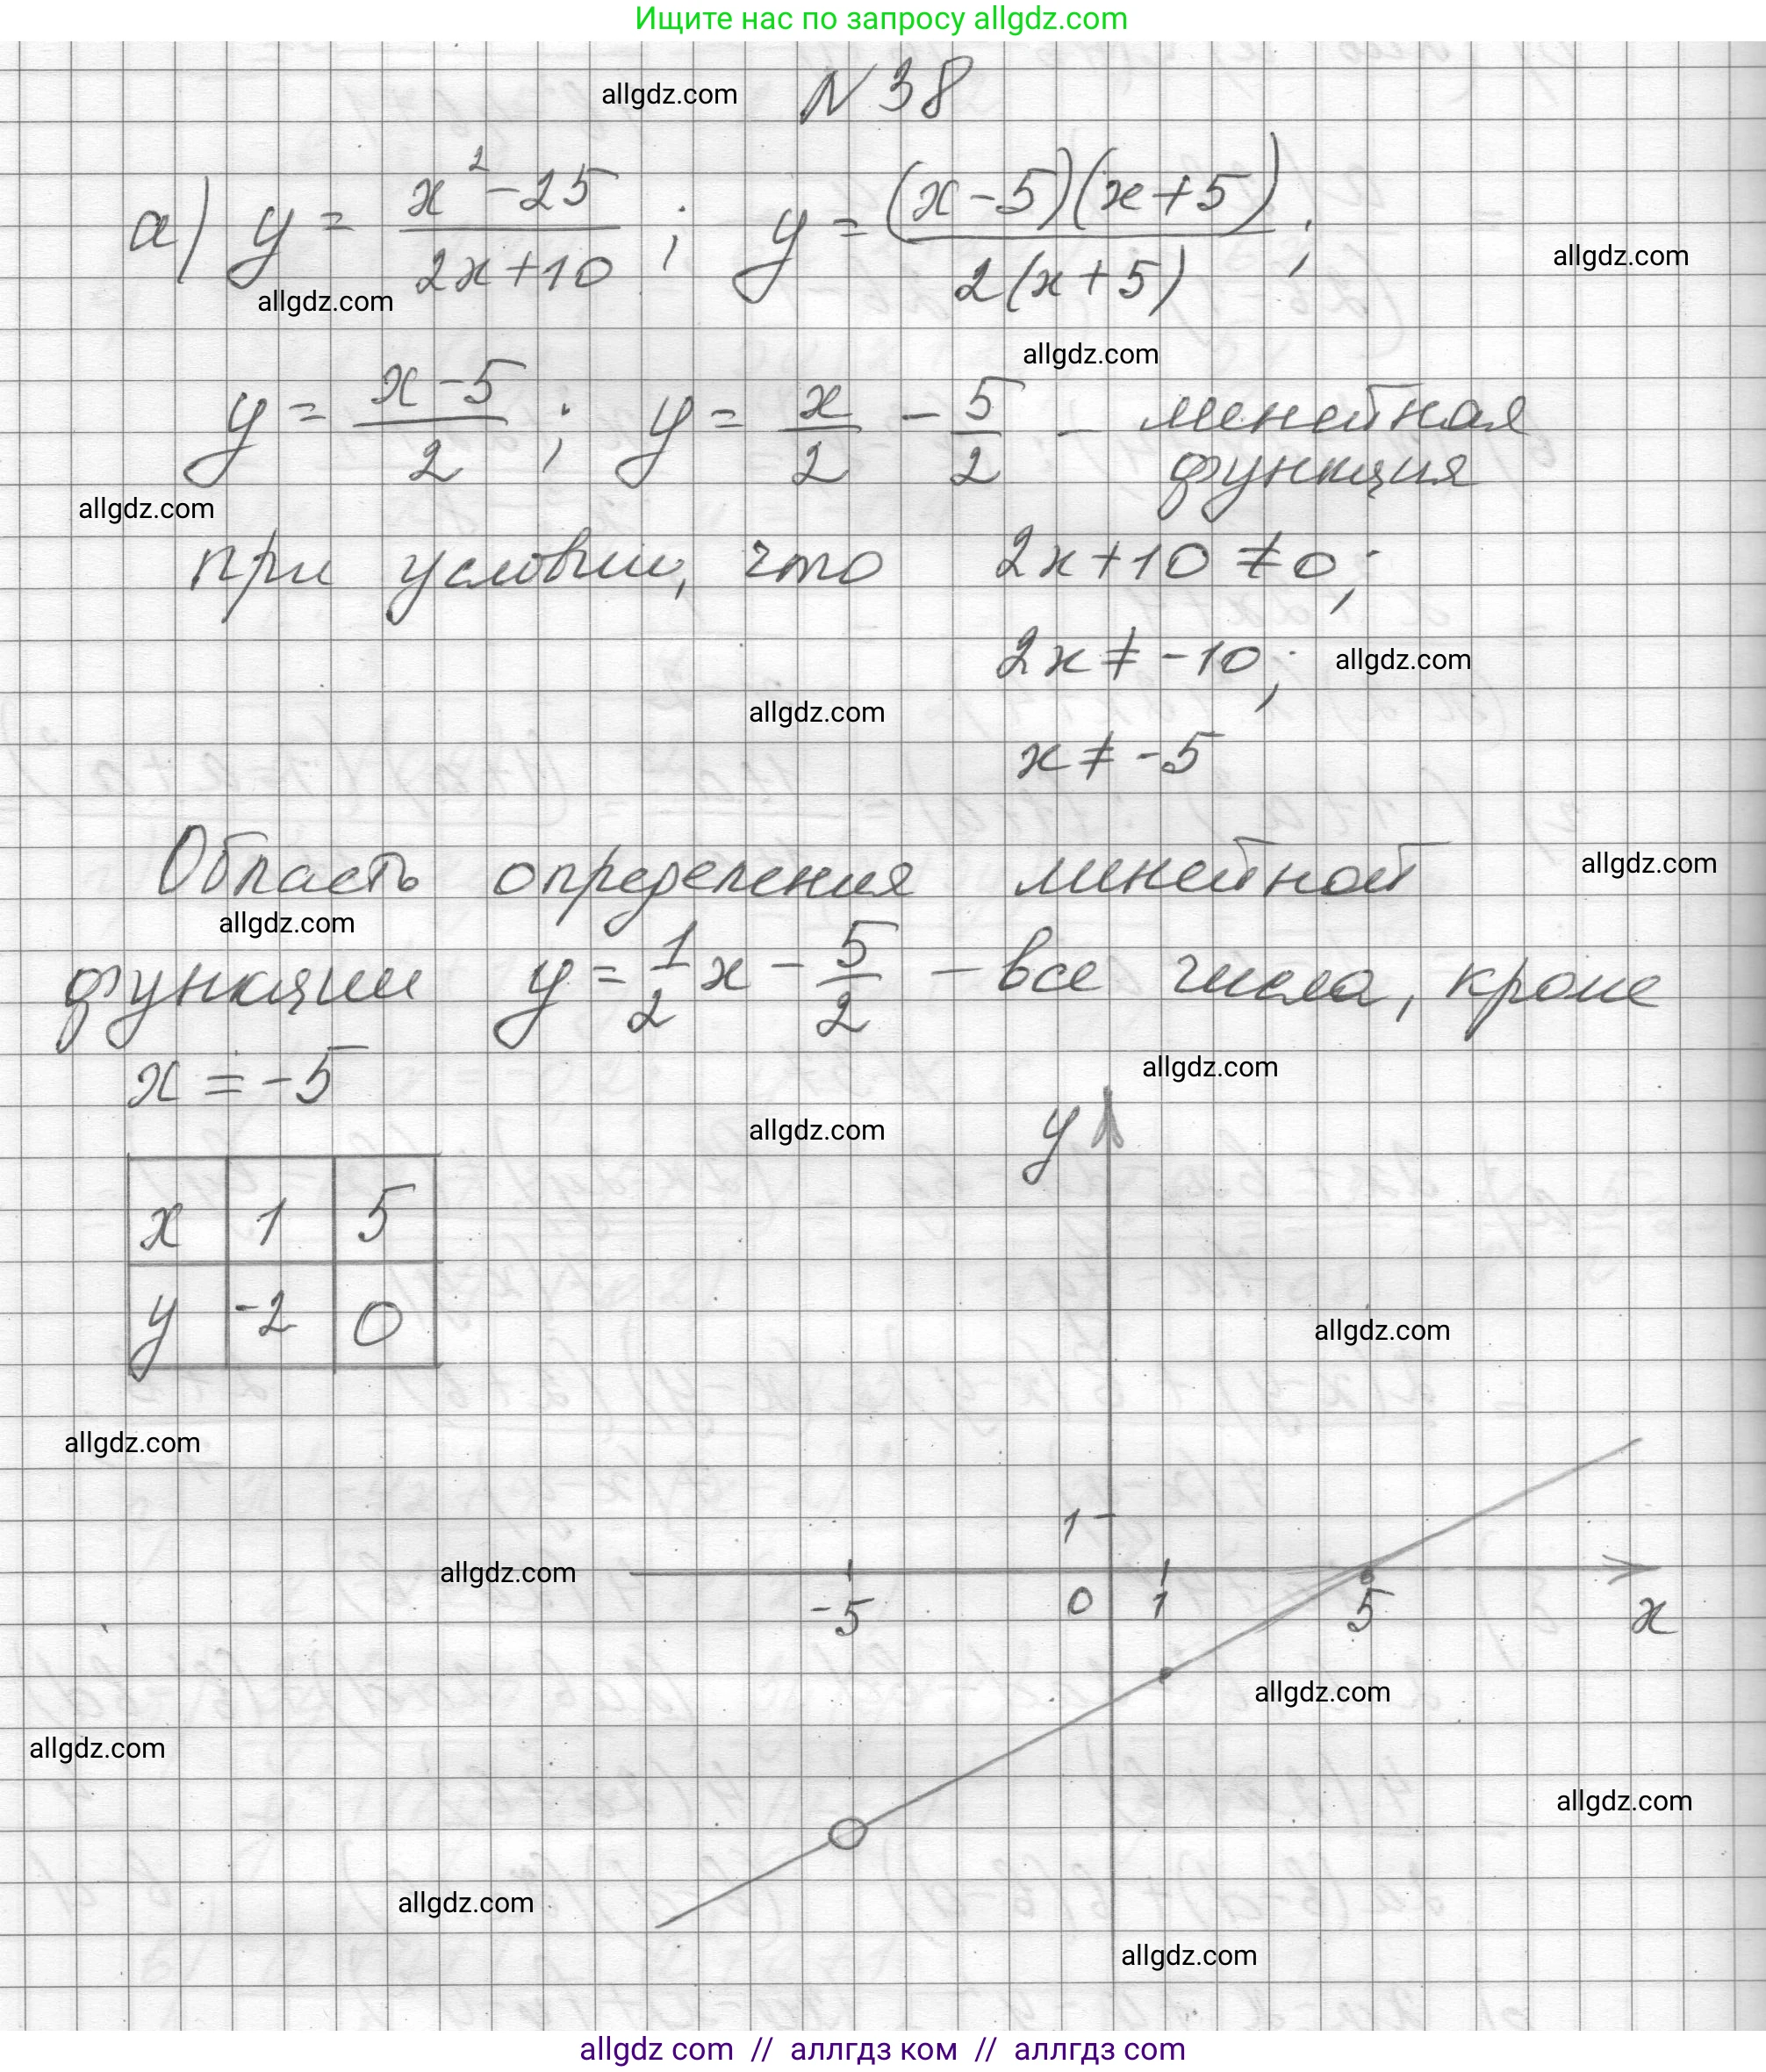 Ищите нас по запросу allgdz.com
allgdz.com
N 38
а) y = (x² - 25)/(2x + 10) ; y = (x - 5)(x + 5)/(2(x + 5)) ;
allgdz.com
allgdz.com
allgdz.com
y = (x - 5)/2 ; y = x/2 - 5/2 - линейная
функция
allgdz.com
при условии, что 2x + 10 ≠ 0;
2x ≠ -10;
allgdz.com
allgdz.com
x ≠ -5
Область определения линейной
allgdz.com
allgdz.com
функции y = 1/2 x - 5/2 - все числа, кроме
x = -5
allgdz.com
allgdz.com
y
x 1 5
y -2 0
allgdz.com
allgdz.com
1
allgdz.com
-5 0 1 5 x
allgdz.com
allgdz.com
allgdz.com
allgdz.com
allgdz.com
allgdz com // аллгдз ком // аллгдз com